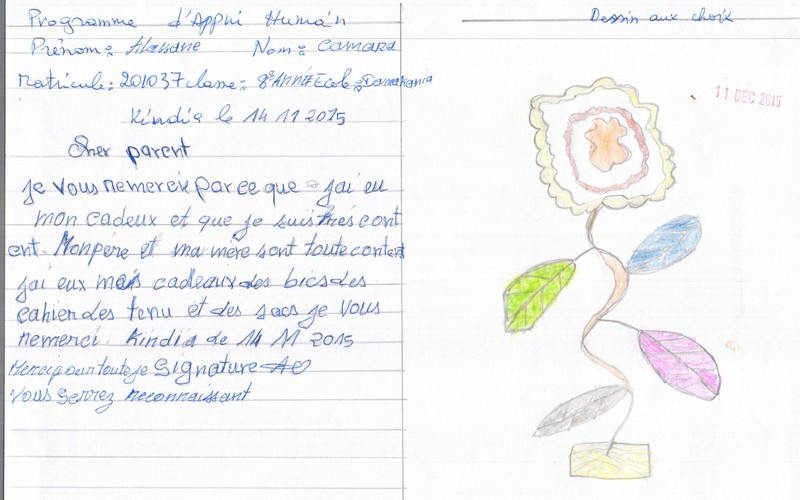 Programme d'Appui Humàn
Prénom: Alassane Nom: camara
Matricule: 201037 classe: 8e Année Ecole: Damakania
Kindia le 14 11 2015
Cher parent
je vous remercie parce que j'ai eu
mon cadeux et que je suis très cont
ent. Monpère et ma mère sont toute content
jai eux mais cadeaux des bics des
cahier des tenu et des sacs je vous
remerci Kindia de 14 11 2015
Merci pour toute je Signature
vous serrez reconnaissant
Dessin aux choix
11 DEC 2015